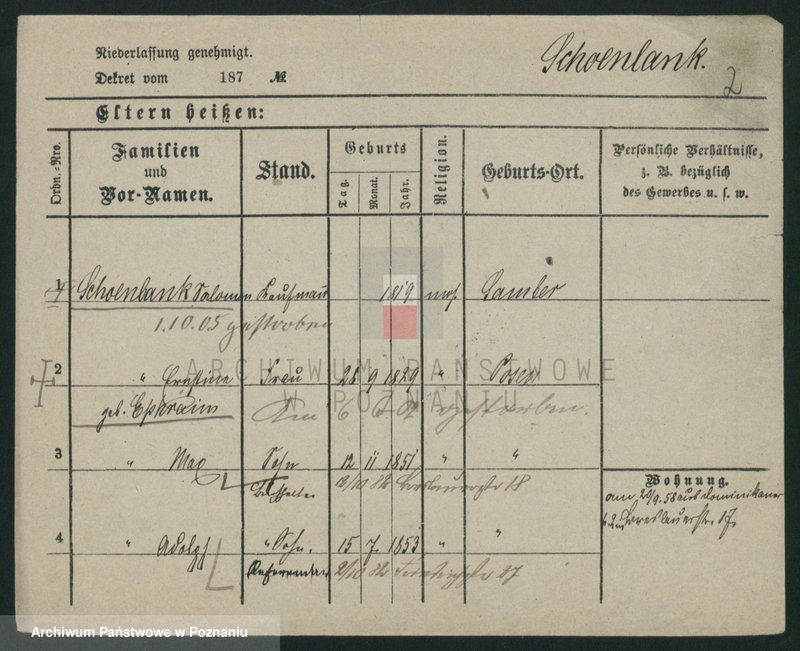 Niederlassung genehmigt.
Dekret vom 187 №
Schoenlank.
2
Eltern heißen:
Ordn.-Nro.
Familien und Vor-Namen.
Stand.
Geburts
Tag.
Monat.
Jahr.
Religion.
Geburts-Ort.
Persönliche Verhältnisse, z. B. bezüglich des Gewerbes u. s. w.
1 Schoenlank Salomon Kaufmann 1819 mos. Samter
1.10.05 gestorben
2 " Ernstine Frau 26 9 1829 " Posen
geb. Ephraim Am gestorben.
3 " Max Sohn 12 11 1851 " "
13/10 82 Breslauerstr 18
Wohnung.
am 20/9. 58 aus Dominikaner
Breslauerstr. 17.
4 " Adolph " Sohn. 15 7 1853 " "
Referendar 2/10 82
ARCHIWUM PAŃSTWOWE
W POZNANIU
Archiwum Państwowe w Poznaniu